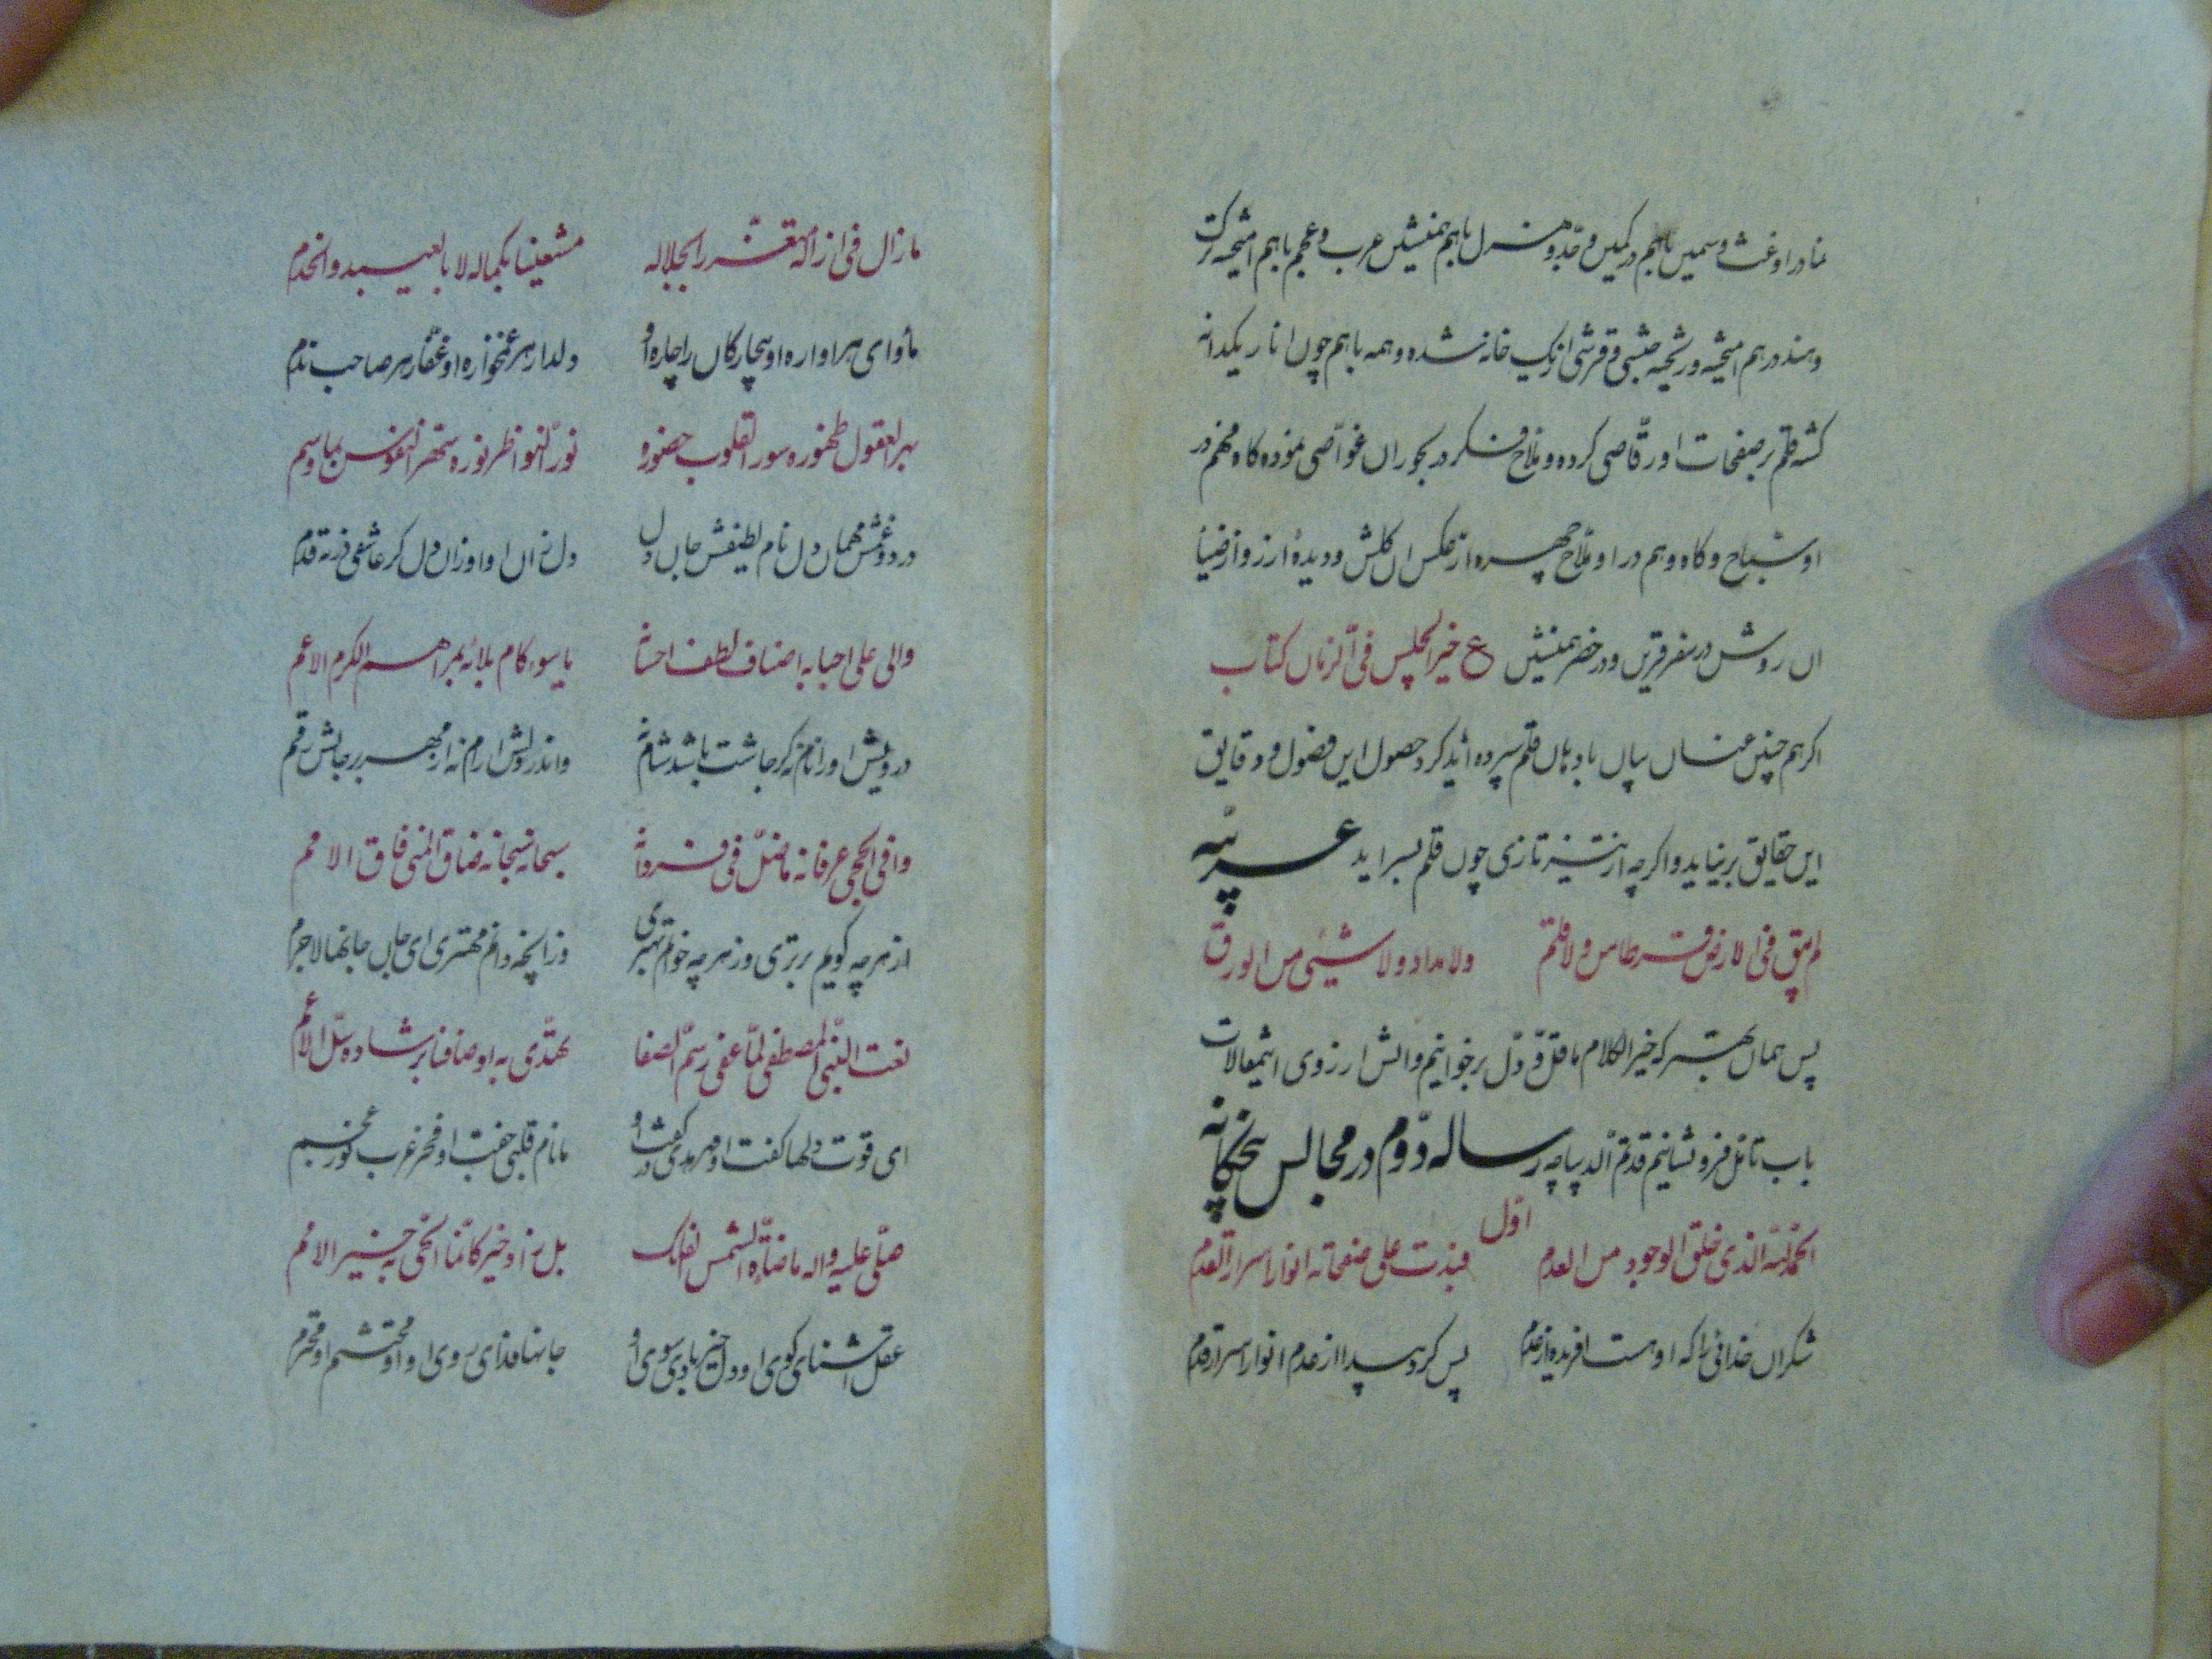 نما در او غث و سمین باهم در کمین و جد و هزل باهم همنشین عرب و عجم باهم امیخته ترک
و هند در هم امیخته و ریخته حبشی و قرشی از یک خانه شده و همه باهم چون انار یکدانه
کشته قلم بر صفحات او رقاصی کرده و ملاح فکر در بحور ان غواصی نموده کاه فهم در
او سباح و کاه وهم در او ملاح چهره از عکس ان کلش و دیدهٔ ارزو از ضیاٴ
ان روشن در سفر قرین و در حضر همنشین ع خیر الجلیس فی الزمان کتاب
اکر هم چنین عنان بیان بادبان قلم سپرده اید کرد حصول این فضول و دقایق
این حقایق برنیاید و اکرچه از تیز تازی چون قلم بسر اید عربیه
لم یبق فی الارض قرطاس و لا قلم ولا مداد و لا شیئی من الورق
پس همان بهتر که خیر الکلام ما قل و دل برخوانیم و اتش ارزوی این مقالات
باب تامل فرو نشانیم قد تم الدیباچه رساله دوم در مجالس پنجکانه
اول
الحمد لله الذی خلق الوجود من العدم فبدت علی صفحاته انوار اسرار القدم
شکر ان خدائی را که او هست افریده از عدم پس کرد پیدا از عدم انوار اسرار قدم
ما زال فی ازاله متعززا بجلاله مستغنیا بکماله لا بالعبید و الخدم
ماوای هر اواره او بیچارکان را چاره او دلدار هر غمخواره او غفار هر صاحب ندم
بهر العقول ظهوره سور القلوب حضوره نور النواظر نوره سحر النفوس بما وسم
درد و غمش مهمان دل نام لطیفش جان دل دل زان او او زان دل کر عاشقی درنه قدم
والی علی احبابه اصناف لطف احسانه
درویش او را نام نه کر چاشت باشد شام نه و اندر دلش ارام نه از مهر بر جانش رقم
وافی الحجی عرفانه ماضل فی سبحانه سبحانه ضاق المنی فاق الامم
از هرچه کویم برتری وز هرچه خوانم بهتری وز انچه دانم مهتری ای جان جانها لاجرم
نعت النبی المصطفی لما عفی رسم الصفا
ای قوت دلها کفت او ما نام قلبی جفت او فخر عرب نور عجم
صلی علیه و اله ما ضاءه الشمس الفلک بل زاد خیر کائنا الحی به خیر الامم
عقل اشنای کوی او دل خیر بادی سوی او جانها فدای روی او او محتشم او محترم